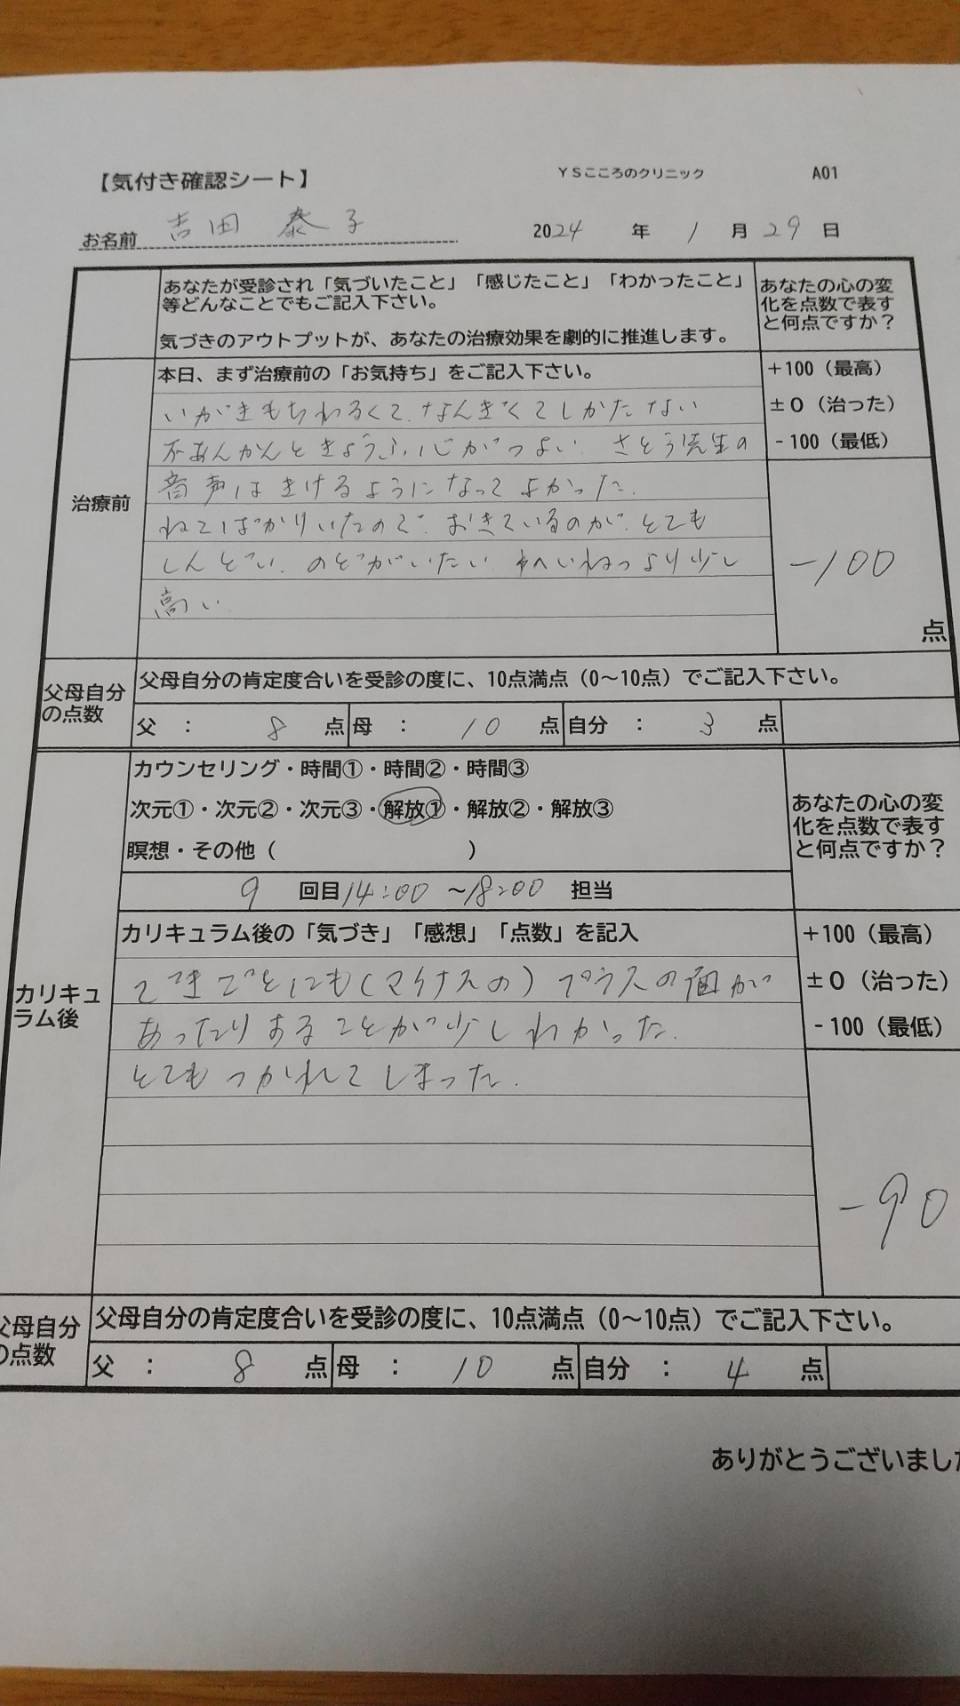 【気付き確認シート】 YSこころのクリニック A01
お名前 吉田 泰子 2024 年 1 月 29 日
あなたが受診され「気づいたこと」「感じたこと」「わかったこと」
等どんなことでもご記入下さい。
気づきのアウトプットが、あなたの治療効果を劇的に推進します。
あなたの心の変
化を点数で表す
と何点ですか?
治療前
本日、まず治療前の「お気持ち」をご記入下さい。
いがきもちわるくて、なんぎくてしかたない
不あんかんときょうふ心がつよい、さとう先生の
音声はきけるようになってよかった。
ねてばかりいたので、おきているのが、とても
しんどい、のどがいたい、へいねつより少し
高い
+100(最高)
±0(治った)
-100(最低)
-100
点
父母自分
の点数
父母自分の肯定度合いを受診の度に、10点満点(0~10点)でご記入下さい。
父 : 8 点 母 : 10 点 自分 : 3 点
カリキュ
ラム後
カウンセリング・時間①・時間②・時間③
次元①・次元②・次元③・解放①・解放②・解放③
瞑想・その他( )
9 回目 14:00 ~18:00 担当
あなたの心の変
化を点数で表す
と何点ですか?
カリキュラム後の「気づき」「感想」「点数」を記入
できごとにも(マイナスの)プラスの面が
あったりすることが少しわかった。
とてもつかれてしまった。
+100(最高)
±0(治った)
-100(最低)
-90
父母自分
の点数
父母自分の肯定度合いを受診の度に、10点満点(0~10点)でご記入下さい。
父 : 8 点 母 : 10 点 自分 : 4 点
ありがとうございました